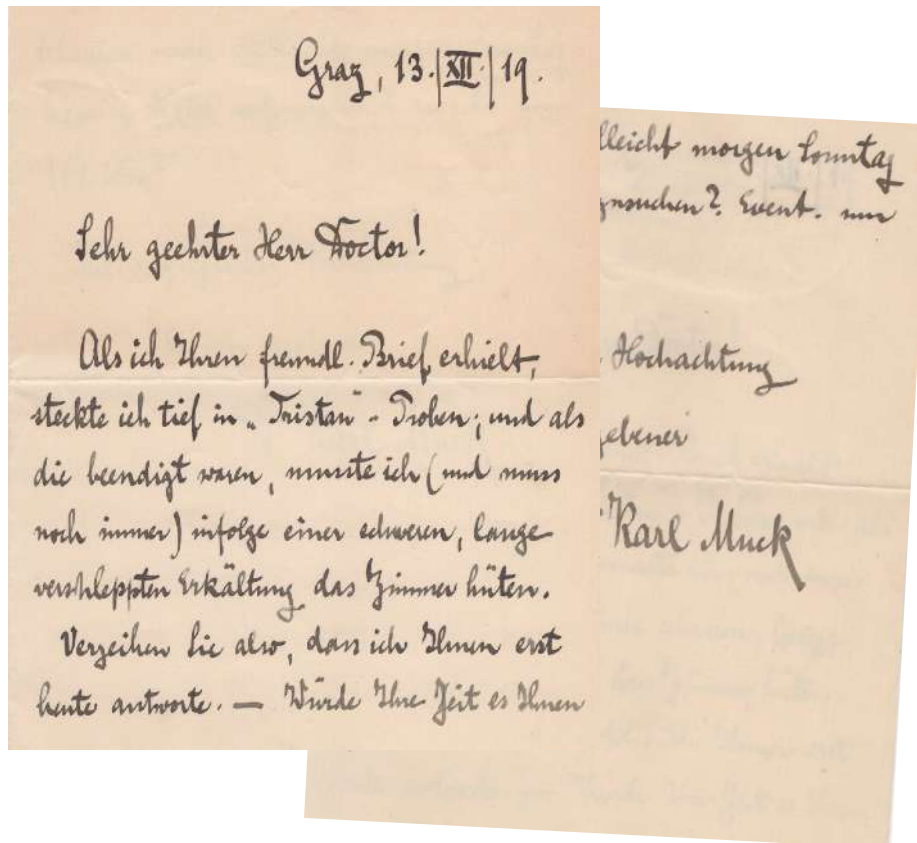 Graz, 13.|XII.|19.
Sehr geehrter Herr Doctor!
Als ich Ihren freundl. Brief erhielt,
steckte ich tief in „Tristan"-Proben; und als
die beendigt waren, musste ich (und muss
noch immer) infolge einer schweren, lange
verschleppten Erkältung das Zimmer hüten.
Verzeihen Sie also, dass ich Ihnen erst
heute antworte. — Würde Ihre Zeit es Ihnen
lleicht morgen Sonntag
Event. nur
Hochachtung
gebener
Karl Muck